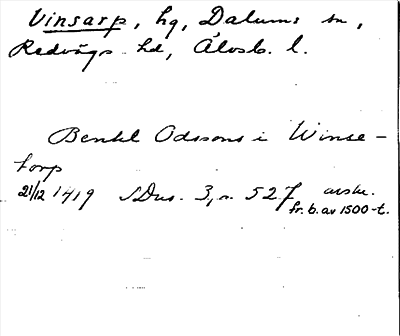 Vinsarp, hg, Dalums sn,
Redvägs hd, Älvsb. l.
Benkt Odssons i Winse-
torp
21/12 1419 SDns. 3, n. 527 avskr.
fr. b. av 1500-t.